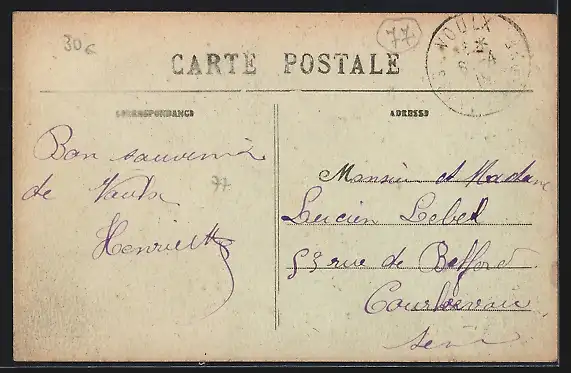 30€
77
NOULX
CARTE POSTALE
CORRESPONDANCE
ADRESSE
Bon souvenir
de Vaulx
77
Henriette
Monsieur et Madame
Lucien Lebel
53 rue de Belfort
Courbevoie
Seine